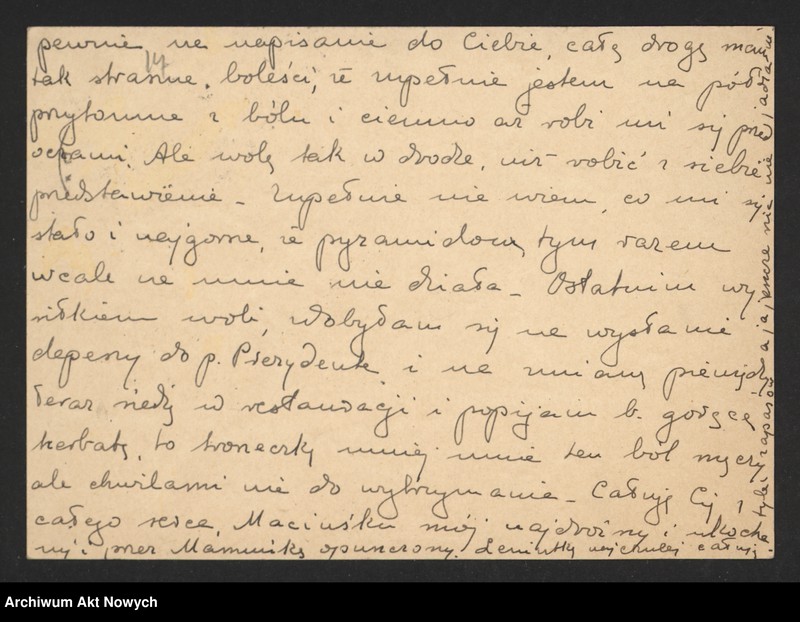 pewnie, na napisanie do Ciebie, całą drogę mam
tak straszne boleści, że zupełnie jestem na pół
przytomna z bólu i ciemno aż robi mi się przed
oczami. Ale wolę tak w drodze, niż robić z siebie
przedstawienie – Zupełnie nie wiem, co mi się
stało i najgorsze, że pyramidon, tym razem
wcale na mnie nie działa – Ostatnim wy
siłkiem woli, zdobyłam się na wysłanie
depeszy do p. Prezydenta i na zmianę pieniędzy
teraz siedzę w restauracji i popijam b. gorącą
herbatę, to troszeczkę mniej mnie ten ból męczy
ale chwilami nie do wytrzymania – Całuję Cię z
całego serca, Maciuśku mój najdroższy i ukocha
ny i przez Mamusikę opuszczony. Leniutkę najczulej całuję.
tyle zapasów a ja jeszcze nic nie jadłam.
Archiwum Akt Nowych